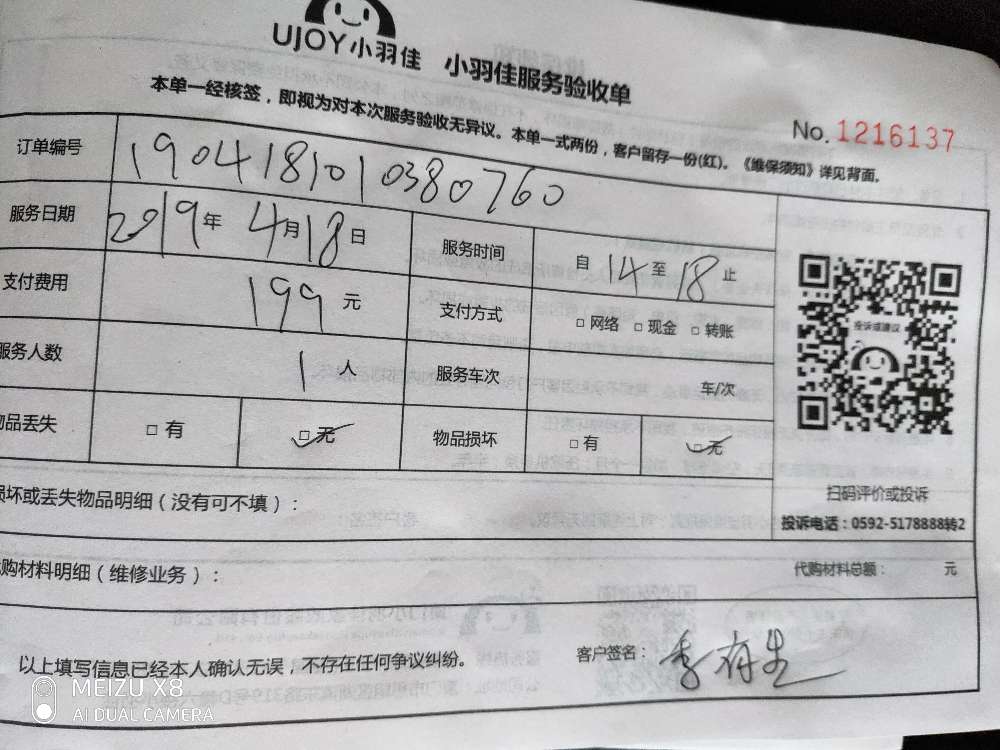 UJOY小羽佳 小羽佳服务验收单
本单一经核签，即视为对本次服务验收无异议。本单一式两份，客户留存一份(红)。《维保须知》详见背面。
No. 1216137
订单编号 1904181010380760
服务日期 2019年4月18日 服务时间 自14至18止
支付费用 199元 支付方式 □网络 □现金 □转账
服务人数 1人 服务车次 车/次
物品丢失 □有 □无 物品损坏 □有 □无
投诉或建议
扫码评价或投诉
投诉电话：0592-5178888转2
损坏或丢失物品明细（没有可不填）：
代购材料明细（维修业务）： 代购材料总额： 元
以上填写信息已经本人确认无误，不存在任何争议纠纷。 客户签名：李存生
MEIZU X8
AI DUAL CAMERA